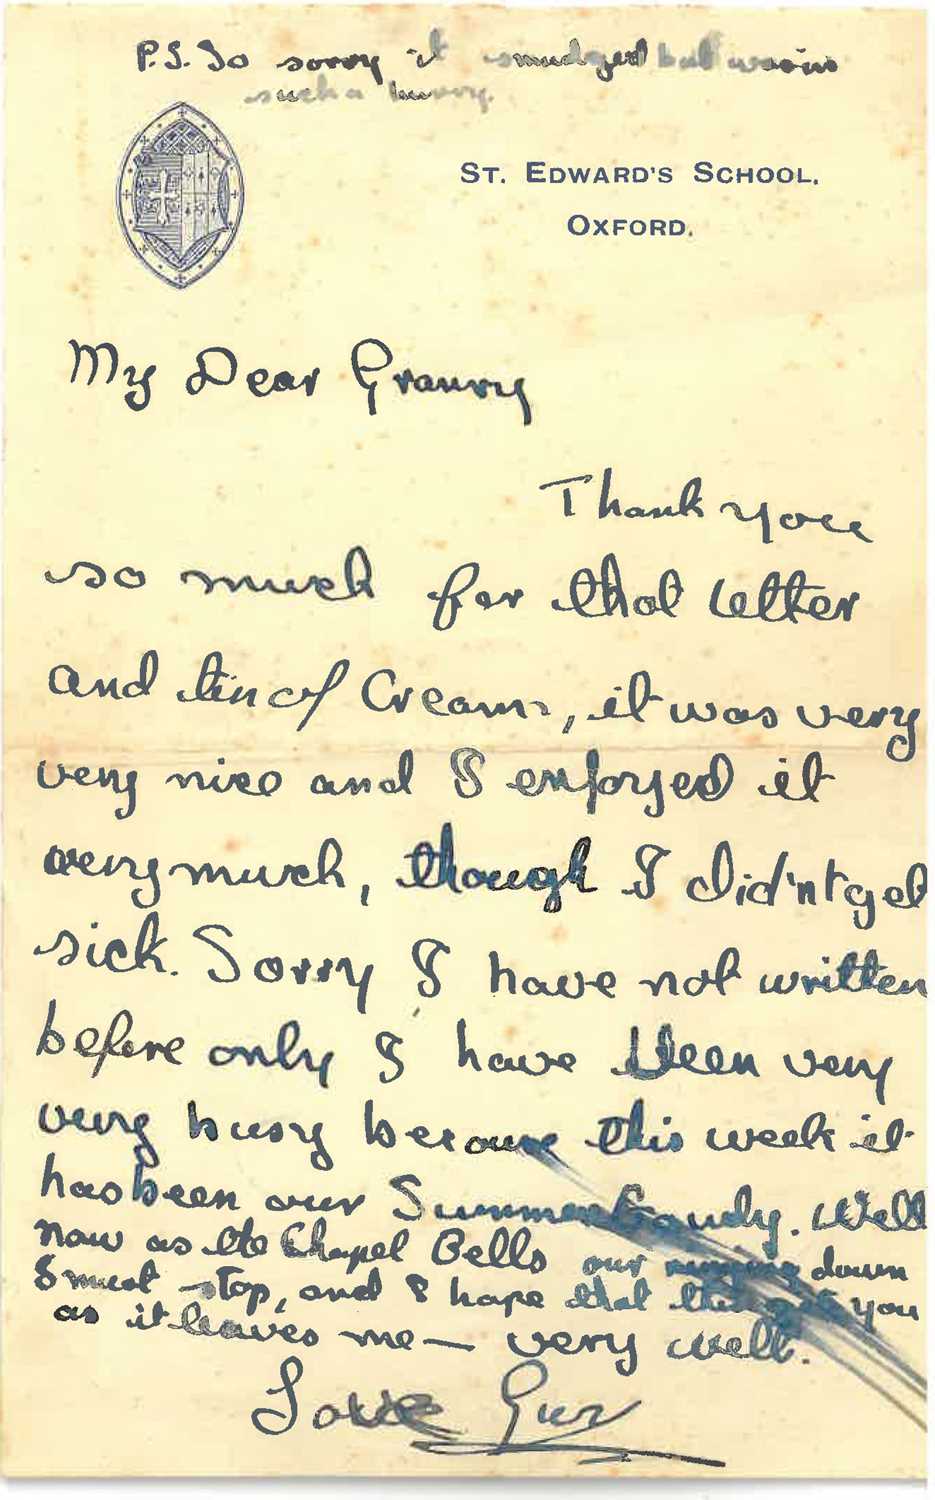 P.S. So sorry it smudged but was in
such a hurry.
ST. EDWARD'S SCHOOL,
OXFORD.
My Dear Granny
Thank you
so much for that letter
and tin of Cream, it was very
very nice and I enjoyed it
very much, though I did'nt get
sick. Sorry I have not written
before only I have been very
very busy because this week it
has been our Summer Gaudy. Well
now as the Chapel Bells our ringing down
I must stop, and I hope that this gets you
as it leaves me — very well.
Love Guy